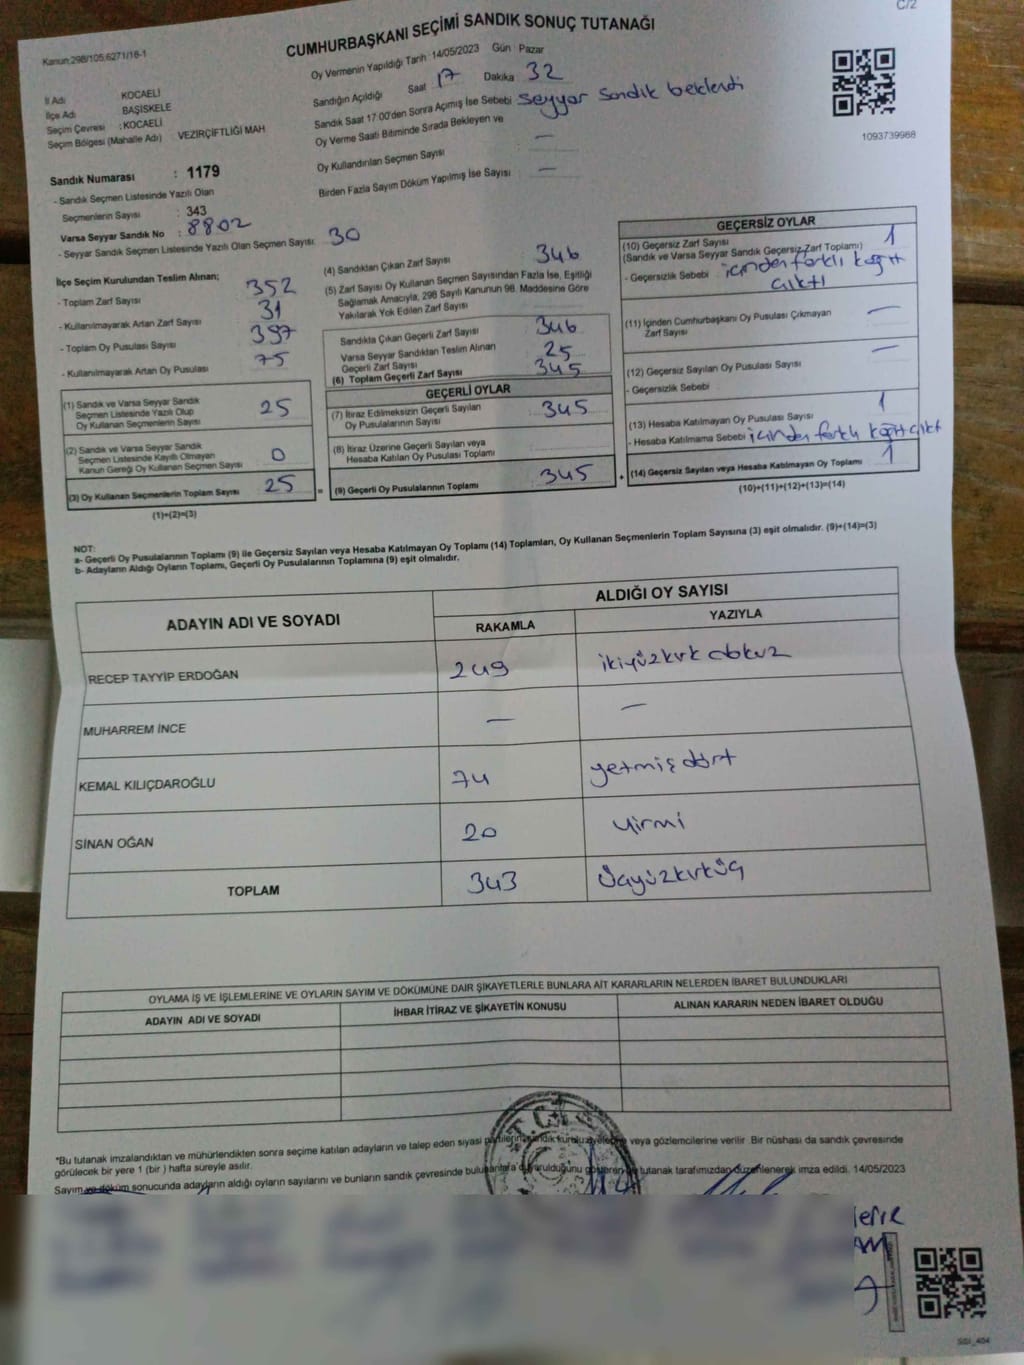 C/2
Kanun:298/105,6271/18-1
CUMHURBAŞKANI SEÇİMİ SANDIK SONUÇ TUTANAĞI
Oy Vermenin Yapıldığı Tarih :14/05/2023 Gün Pazar
İl Adı KOCAELİ
İlçe Adı BAŞİSKELE
Seçim Çevresi : KOCAELİ
Seçim Bölgesi (Mahalle Adı) VEZİRÇİFTLİĞİ MAH
Sandığın Açıldığı Saat 17 Dakika 32
Sandık Saat 17:00'den Sonra Açımış İse Sebebi seyyar sandık beklendi
Oy Verme Saati Bitiminde Sırada Bekleyen ve
Oy Kullandırılan Seçmen Sayısı : —
Birden Fazla Sayım Döküm Yapılmış İse Sayısı : —
1093739988
Sandık Numarası : 1179
- Sandık Seçmen Listesinde Yazılı Olan
Seçmenlerin Sayısı : 343
Varsa Seyyar Sandık No : 8802
- Seyyar Sandık Seçmen Listesinde Yazılı Olan Seçmen Sayısı: 30
İlçe Seçim Kurulundan Teslim Alınan;
- Toplam Zarf Sayısı : 352
- Kullanılmayarak Artan Zarf Sayısı : 31
- Toplam Oy Pusulası Sayısı : 397
- Kullanılmayarak Artan Oy Pusulası : 75
(1) Sandık ve Varsa Seyyar Sandık
Seçmen Listesinde Yazılı Olup
Oy Kullanan Seçmenlerin Sayısı 25
(2) Sandık ve Varsa Seyyar Sandık
Seçmen Listesinde Kayıtlı Olmayan
Kanun Gereği Oy Kullanan Seçmen Sayısı 0
(3) Oy Kullanan Seçmenlerin Toplam Sayısı 25 =
(1)+(2)=(3)
(4) Sandıktan Çıkan Zarf Sayısı 346
(5) Zarf Sayısı Oy Kullanan Seçmen Sayısından Fazla İse, Eşitliği
Sağlamak Amacıyla, 298 Sayılı Kanunun 98. Maddesine Göre
Yakılarak Yok Edilen Zarf Sayısı
Sandıkta Çıkan Geçerli Zarf Sayısı 346
Varsa Seyyar Sandıktan Teslim Alınan
Geçerli Zarf Sayısı 25
(6) Toplam Geçerli Zarf Sayısı 345
GEÇERLİ OYLAR
(7) İtiraz Edilmeksizin Geçerli Sayılan
Oy Pusulalarının Sayısı 345
(8) İtiraz Üzerine Geçerli Sayılan veya
Hesaba Katılan Oy Pusulası Toplamı
(9) Geçerli Oy Pusulalarının Toplamı 345 +
GEÇERSİZ OYLAR
(10) Geçersiz Zarf Sayısı 1
(Sandık ve Varsa Seyyar Sandık Geçersiz Zarf Toplamı)
- Geçersizlik Sebebi içinden farklı kağıt
çıktı
(11) İçinden Cumhurbaşkanı Oy Pusulası Çıkmayan
Zarf Sayısı —
(12) Geçersiz Sayılan Oy Pusulası Sayısı —
- Geçersizlik Sebebi
(13) Hesaba Katılmayan Oy Pusulası Sayısı 1
- Hesaba Katılmama Sebebi içinden farklı kağıt çıktı
(14) Geçersiz Sayılan veya Hesaba Katılmayan Oy Toplamı 1
(10)+(11)+(12)+(13)=(14)
NOT:
a- Geçerli Oy Pusulalarının Toplamı (9) ile Geçersiz Sayılan veya Hesaba Katılmayan Oy Toplamı (14) Toplamları, Oy Kullanan Seçmenlerin Toplam Sayısına (3) eşit olmalıdır. (9)+(14)=(3)
b- Adayların Aldığı Oyların Toplamı, Geçerli Oy Pusulalarının Toplamına (9) eşit olmalıdır.
ADAYIN ADI VE SOYADI ALDIĞI OY SAYISI
RAKAMLA YAZIYLA
RECEP TAYYİP ERDOĞAN 249 ikiyüzkırk dokuz
MUHARREM İNCE — —
KEMAL KILIÇDAROĞLU 74 yetmişdört
SİNAN OĞAN 20 yirmi
TOPLAM 343 üçyüzkırküç
OYLAMA İŞ VE İŞLEMLERİNE VE OYLARIN SAYIM VE DÖKÜMÜNE DAİR ŞİKAYETLERLE BUNLARA AİT KARARLARIN NELERDEN İBARET BULUNDUKLARI
ADAYIN ADI VE SOYADI İHBAR İTİRAZ VE ŞİKAYETİN KONUSU ALINAN KARARIN NEDEN İBARET OLDUĞU
"Bu tutanak imzalandıktan ve mühürlendikten sonra seçime katılan adayların ve talep eden siyasi partilerin sandık kurulu üyelerine veya gözlemcilerine verilir. Bir nüshası da sandık çevresinde
görülecek bir yere 1 (bir ) hafta süreyle asılır.
Sayım ve döküm sonucunda adayların aldığı oyların sayılarını ve bunların sandık çevresinde bulunanlara duyurulduğunu gösteren bu tutanak tarafımızdan düzenlenerek imza edildi. 14/05/2023
T.C.
SSI_404